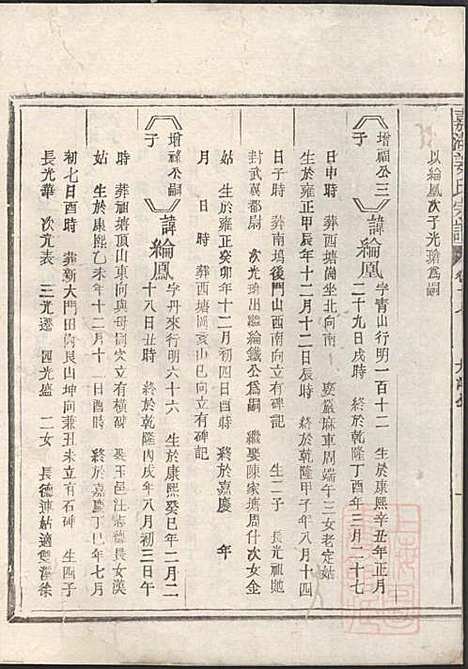 以綸鳳次子光瑜為嗣
增福公三子
諱綸鳳
字青山行明一百十二 生於康熙辛丑年正月
二十九日戌時 終於乾隆丁酉年三月二十七
日申時 葬西塘崗坐北向南 娶嚴麻車周端午三女老定姑
生於雍正甲辰年十二月十二日辰時 終於乾隆甲子年八月十四
日子時 葬南塢後門山西南向立有碑記 生二子 長光祖貤
封武畧都尉 次光瑜出繼綸鐵公為嗣 繼娶陳家塘周什次女金
姑 生於雍正癸卯年十二月初四日酉時 終於嘉慶 年
月 日 時 葬西塘 亥山巳向立有碑記
增福公嗣子
諱綸鳳
字丹來行明六十六 生於康熙癸巳年二月二
十八日丑時 終於乾隆丙戌年八月初三日午
時 葬祖塘頂山東向與母同穴立有橫碑 娶王邑汪姑德長女漢
姑 生於康熙乙未年十二月十一日酉時 終於嘉慶丁巳年七月
初七日酉時 葬新大門田灣艮山坤向兼丑未立有石碑 生四子
長光華 次光表 三光遷 四光盛 二女 長德連姑適雙溜徐